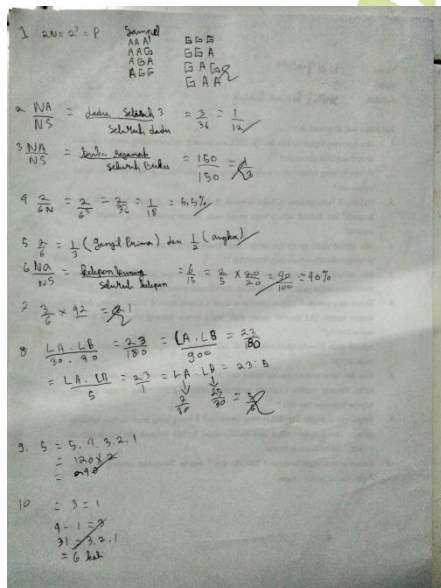 1 2N = 2³ = P Sampel
AAA GGG
AAG GGA
AGA GAG
AGG GAA
2 NA/NS = dadu Selisih 3 / Seluruh dadu = 3/36 = 1/12
3 NA/NS = / Seluruh Buku = 150/150 =
4 2/6N = 2/6² = 2/36 = 1/18 = 5,5%
5 2/6 = 1/3 (Ganjil Prima) dan 1/2 (angka)
6 Na/NS = Kelepon kuning / Seluruh kelepon = 6/15 = 2/5 × 20/20 = 40/100 = 40%
7 3/6 × 42 = 21
8 LA . LB / 30 . 30 = 23/180 = LA . LB / 900 = 23/180
= LA . LB / 5 = 23/1 = LA . LB = 23 . 5
2/30 25/30 = 5/6
9. 5 = 5. 4. 3. 2. 1
= 120 × 2
= 240
10 = 3 = 1
4 - 1 = 3
3! = 3. 2. 1
= 6 kali